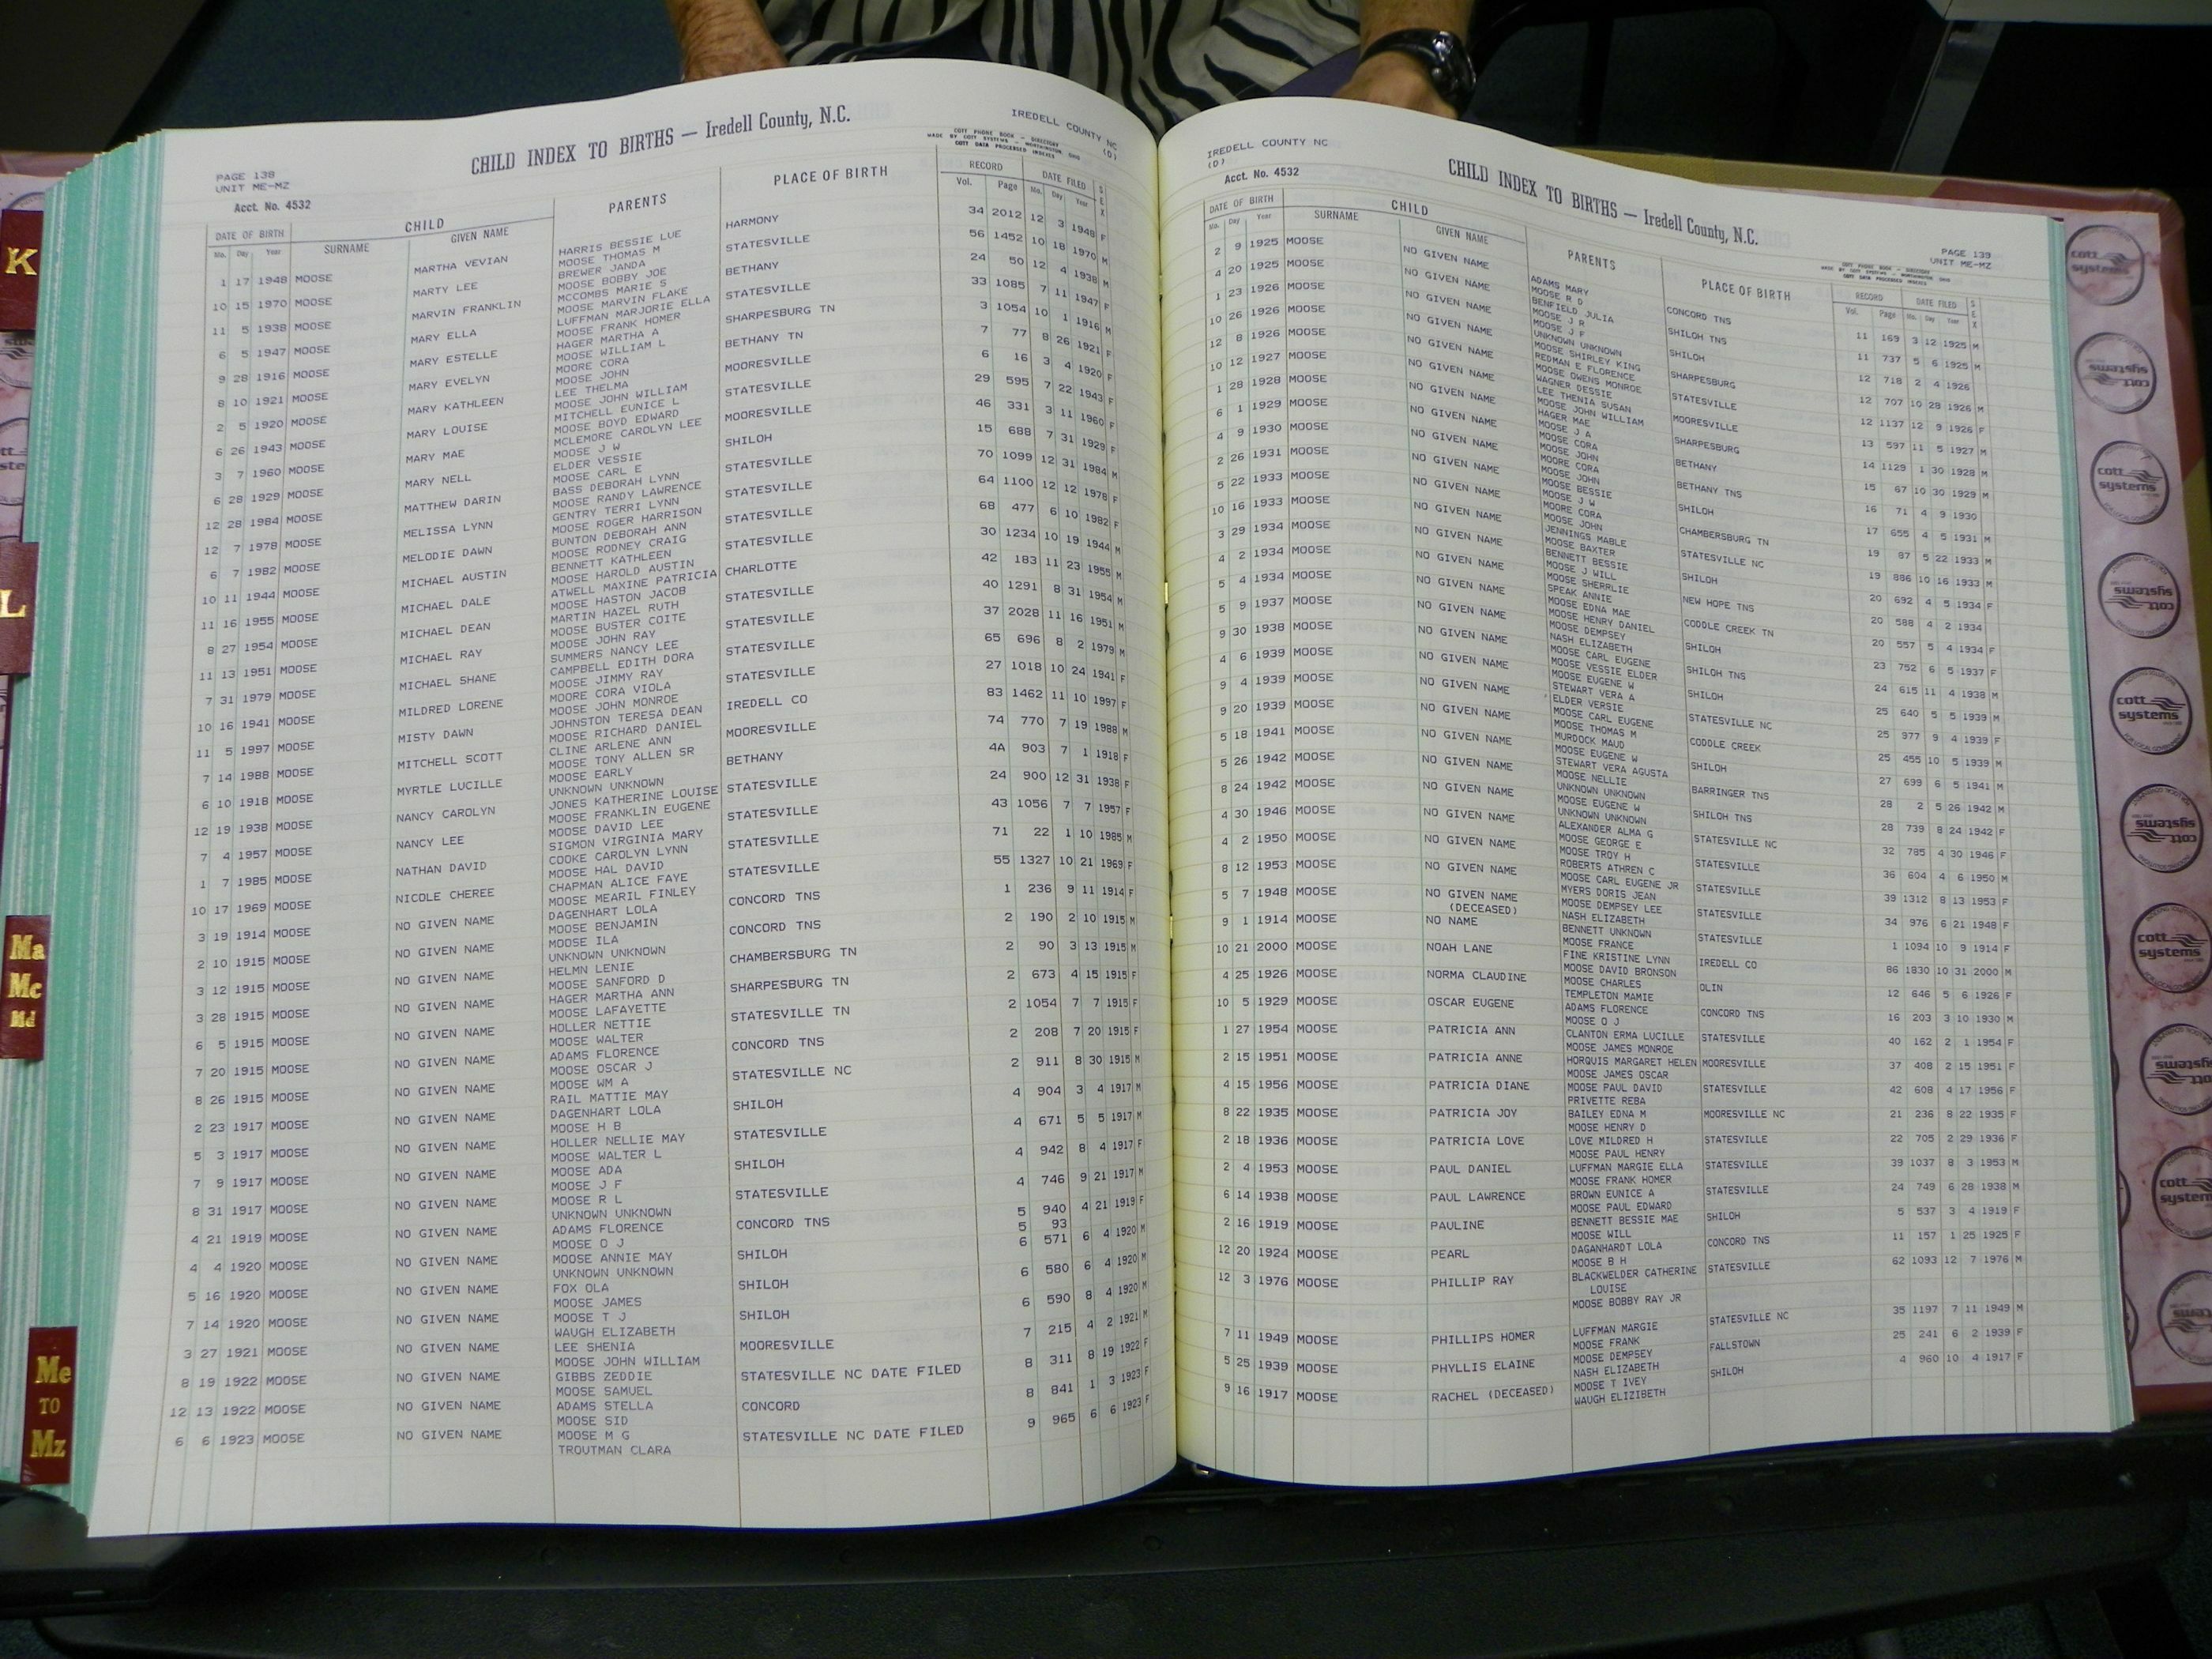 PAGE 138
UNIT ME-MZ
Acct. No. 4532
CHILD INDEX TO BIRTHS — Iredell County, N.C.
IREDELL COUNTY NC
(D)
COTT PHONE BOOK - DIRECTORY
MADE BY COTT SYSTEMS - WORTHINGTON, OHIO
COTT DATA PROCESSED INDEXES
DATE OF BIRTH CHILD PARENTS PLACE OF BIRTH RECORD DATE FILED SEX
Mo. Day Year SURNAME GIVEN NAME Vol. Page Mo. Day Year
1 17 1948 MOOSE MARTHA VEVIAN HARRIS BESSIE LUE HARMONY 34 2012 12 3 1948 F
MOOSE THOMAS M
10 15 1970 MOOSE MARTY LEE BREWER JANDA STATESVILLE 56 1452 10 18 1970 M
MOOSE BOBBY JOE
11 5 1938 MOOSE MARVIN FRANKLIN MCCOMBS MARIE S BETHANY 24 50 12 4 1938 M
MOOSE MARVIN FLAKE
6 5 1947 MOOSE MARY ELLA LUFFMAN MARJORIE ELLA STATESVILLE 33 1085 7 11 1947 F
MOOSE FRANK HOMER
9 28 1916 MOOSE MARY ESTELLE HAGER MARTHA A SHARPESBURG TN 3 1054 10 1 1916
MOOSE WILLIAM L
8 10 1921 MOOSE MARY EVELYN MOORE CORA BETHANY TN 7 77 8 26 1921 F
MOOSE JOHN
2 5 1920 MOOSE MARY KATHLEEN LEE THELMA MOORESVILLE 6 16 3 4 1920 F
MOOSE JOHN WILLIAM
6 26 1943 MOOSE MARY LOUISE MITCHELL EUNICE L STATESVILLE 29 595 7 22 1943 F
MOOSE BOYD EDWARD
3 7 1960 MOOSE MARY MAE MCLEMORE CAROLYN LEE MOORESVILLE 46 331 3 11 1960 F
MOOSE J W
6 28 1929 MOOSE MARY NELL ELDER VESSIE SHILOH 15 688 7 31 1929 F
MOOSE CARL E
12 28 1984 MOOSE MATTHEW DARIN BASS DEBORAH LYNN STATESVILLE 70 1099 12 31 1984 M
MOOSE RANDY LAWRENCE
12 7 1978 MOOSE MELISSA LYNN GENTRY TERRI LYNN STATESVILLE 64 1100 12 12 1978 F
MOOSE ROGER HARRISON
6 7 1982 MOOSE MELODIE DAWN BUNTON DEBORAH ANN STATESVILLE 68 477 6 10 1982 F
MOOSE RODNEY CRAIG
10 11 1944 MOOSE MICHAEL AUSTIN BENNETT KATHLEEN STATESVILLE 30 1234 10 19 1944 M
MOOSE HAROLD AUSTIN
11 16 1955 MOOSE MICHAEL DALE ATWELL MAXINE PATRICIA CHARLOTTE 42 183 11 23 1955 M
MOOSE HASTON JACOB
8 27 1954 MOOSE MICHAEL DEAN MARTIN HAZEL RUTH STATESVILLE 40 1291 8 31 1954 M
MOOSE BUSTER COITE
11 13 1951 MOOSE MICHAEL RAY MOOSE JOHN RAY STATESVILLE 37 2028 11 16 1951 M
SUMMERS NANCY LEE
7 31 1979 MOOSE MICHAEL SHANE CAMPBELL EDITH DORA STATESVILLE 65 696 8 2 1979 M
MOOSE JIMMY RAY
10 16 1941 MOOSE MILDRED LORENE MOORE CORA VIOLA STATESVILLE 27 1018 10 24 1941 F
MOOSE JOHN MONROE
11 5 1997 MOOSE MISTY DAWN JOHNSTON TERESA DEAN IREDELL CO 83 1462 11 10 1997 F
MOOSE RICHARD DANIEL
7 14 1988 MOOSE MITCHELL SCOTT CLINE ARLENE ANN MOORESVILLE 74 770 7 19 1988 M
MOOSE TONY ALLEN SR
6 10 1918 MOOSE MYRTLE LUCILLE MOOSE EARLY BETHANY 4A 903 7 1 1918 F
UNKNOWN UNKNOWN
12 19 1938 MOOSE NANCY CAROLYN JONES KATHERINE LOUISE STATESVILLE 24 900 12 31 1938 F
MOOSE FRANKLIN EUGENE
7 4 1957 MOOSE NANCY LEE MOOSE DAVID LEE STATESVILLE 43 1056 7 7 1957 F
SIGMON VIRGINIA MARY
1 7 1985 MOOSE NATHAN DAVID COOKE CAROLYN LYNN STATESVILLE 71 22 1 10 1985 M
MOOSE HAL DAVID
10 17 1969 MOOSE NICOLE CHEREE CHAPMAN ALICE FAYE STATESVILLE 55 1327 10 21 1969 F
MOOSE MEARIL FINLEY
3 19 1914 MOOSE NO GIVEN NAME DAGENHART LOLA CONCORD TNS 1 236 9 11 1914 F
MOOSE BENJAMIN
2 10 1915 MOOSE NO GIVEN NAME MOOSE ILA CONCORD TNS 2 190 2 10 1915 M
UNKNOWN UNKNOWN
3 12 1915 MOOSE NO GIVEN NAME HELMN LENIE CHAMBERSBURG TN 2 90 3 13 1915 M
MOOSE SANFORD D
3 28 1915 MOOSE NO GIVEN NAME HAGER MARTHA ANN SHARPESBURG TN 2 673 4 15 1915 F
MOOSE LAFAYETTE
6 5 1915 MOOSE NO GIVEN NAME HOLLER NETTIE STATESVILLE TN 2 1054 7 7 1915 F
MOOSE WALTER
7 20 1915 MOOSE NO GIVEN NAME ADAMS FLORENCE CONCORD TNS 2 208 7 20 1915 F
MOOSE OSCAR J
8 26 1915 MOOSE NO GIVEN NAME MOOSE WM A STATESVILLE NC 2 911 8 30 1915 M
RAIL MATTIE MAY
2 23 1917 MOOSE NO GIVEN NAME DAGENHART LOLA SHILOH 4 904 3 4 1917 M
MOOSE H B
5 3 1917 MOOSE NO GIVEN NAME HOLLER NELLIE MAY STATESVILLE 4 671 5 5 1917 M
MOOSE WALTER L
7 9 1917 MOOSE NO GIVEN NAME MOOSE ADA SHILOH 4 942 8 4 1917 F
MOOSE J F
8 31 1917 MOOSE NO GIVEN NAME MOOSE R L STATESVILLE 4 746 9 21 1917 M
UNKNOWN UNKNOWN
4 21 1919 MOOSE NO GIVEN NAME ADAMS FLORENCE CONCORD TNS 5 940 4 21 1919 F
MOOSE O J 5 93
4 4 1920 MOOSE NO GIVEN NAME MOOSE ANNIE MAY SHILOH 6 571 6 4 1920 M
UNKNOWN UNKNOWN
5 16 1920 MOOSE NO GIVEN NAME FOX OLA SHILOH 6 580 6 4 1920 M
MOOSE JAMES
7 14 1920 MOOSE NO GIVEN NAME MOOSE T J SHILOH 6 590 8 4 1920 M
WAUGH ELIZABETH
3 27 1921 MOOSE NO GIVEN NAME LEE SHENIA MOORESVILLE 7 215 4 2 1921 M
MOOSE JOHN WILLIAM
8 19 1922 MOOSE NO GIVEN NAME GIBBS ZEDDIE STATESVILLE NC DATE FILED 8 311 8 19 1922 F
MOOSE SAMUEL
12 13 1922 MOOSE NO GIVEN NAME ADAMS STELLA CONCORD 8 841 1 3 1923 F
MOOSE SID
6 6 1923 MOOSE NO GIVEN NAME MOOSE M G STATESVILLE NC DATE FILED 9 965 6 6 1923 F
TROUTMAN CLARA
IREDELL COUNTY NC
(D)
Acct. No. 4532
CHILD INDEX TO BIRTHS — Iredell County, N.C.
PAGE 139
UNIT ME-MZ
COTT PHONE BOOK - DIRECTORY
MADE BY COTT SYSTEMS - WORTHINGTON, OHIO
COTT DATA PROCESSED INDEXES
DATE OF BIRTH CHILD PARENTS PLACE OF BIRTH RECORD DATE FILED SEX
Mo. Day Year SURNAME GIVEN NAME Vol. Page Mo. Day Year
2 9 1925 MOOSE NO GIVEN NAME ADAMS MARY CONCORD TNS 11 169 3 12 1925 M
MOOSE R D
4 20 1925 MOOSE NO GIVEN NAME BENFIELD JULIA SHILOH TNS 11 737 5 6 1925 M
MOOSE J R
1 23 1926 MOOSE NO GIVEN NAME MOOSE J F SHILOH 12 718 2 4 1926
UNKNOWN UNKNOWN
10 26 1926 MOOSE NO GIVEN NAME MOOSE SHIRLEY KING SHARPESBURG 12 707 10 28 1926 M
REDMAN E FLORENCE
12 8 1926 MOOSE NO GIVEN NAME MOOSE OWENS MONROE STATESVILLE 12 1137 12 9 1926 F
WAGNER DESSIE
10 12 1927 MOOSE NO GIVEN NAME LEE THENIA SUSAN MOORESVILLE 13 597 11 5 1927 M
MOOSE JOHN WILLIAM
1 28 1928 MOOSE NO GIVEN NAME HAGER MAE SHARPESBURG 14 1129 1 30 1928 M
MOOSE J A
6 1 1929 MOOSE NO GIVEN NAME MOOSE CORA BETHANY 15 67 10 30 1929 M
MOOSE JOHN
4 9 1930 MOOSE NO GIVEN NAME MOORE CORA BETHANY TNS 16 71 4 9 1930
MOOSE JOHN
2 26 1931 MOOSE NO GIVEN NAME MOOSE BESSIE SHILOH 17 655 4 5 1931 M
MOOSE J W
5 22 1933 MOOSE NO GIVEN NAME MOORE CORA CHAMBERSBURG TN 19 87 5 22 1933 M
MOOSE JOHN
10 16 1933 MOOSE NO GIVEN NAME JENNINGS MABLE STATESVILLE NC 19 886 10 16 1933 M
MOOSE BAXTER
3 29 1934 MOOSE NO GIVEN NAME BENNETT BESSIE SHILOH 20 692 4 5 1934 F
MOOSE J WILL
4 2 1934 MOOSE NO GIVEN NAME MOOSE SHERRLIE NEW HOPE TNS 20 588 4 2 1934
SPEAK ANNIE
5 4 1934 MOOSE NO GIVEN NAME MOOSE EDNA MAE CODDLE CREEK TN 20 557 5 4 1934 F
MOOSE HENRY DANIEL
5 9 1937 MOOSE NO GIVEN NAME MOOSE DEMPSEY SHILOH 23 752 6 5 1937 F
NASH ELIZABETH
9 30 1938 MOOSE NO GIVEN NAME MOOSE CARL EUGENE SHILOH TNS 24 615 11 4 1938 M
MOOSE VESSIE ELDER
4 6 1939 MOOSE NO GIVEN NAME MOOSE EUGENE W SHILOH 25 640 5 5 1939 M
STEWART VERA A
9 4 1939 MOOSE NO GIVEN NAME ELDER VERSIE STATESVILLE NC 25 977 9 4 1939 F
MOOSE CARL EUGENE
9 20 1939 MOOSE NO GIVEN NAME MOOSE THOMAS M CODDLE CREEK 25 455 10 5 1939 M
MURDOCK MAUD
5 18 1941 MOOSE NO GIVEN NAME MOOSE EUGENE W SHILOH 27 699 6 5 1941 M
STEWART VERA AGUSTA
5 26 1942 MOOSE NO GIVEN NAME MOOSE NELLIE BARRINGER TNS 28 2 5 26 1942 M
UNKNOWN UNKNOWN
8 24 1942 MOOSE NO GIVEN NAME MOOSE EUGENE W SHILOH TNS 28 739 8 24 1942 F
UNKNOWN UNKNOWN
4 30 1946 MOOSE NO GIVEN NAME ALEXANDER ALMA G STATESVILLE NC 32 785 4 30 1946 F
MOOSE GEORGE E
4 2 1950 MOOSE NO GIVEN NAME MOOSE TROY H STATESVILLE 36 604 4 6 1950 M
ROBERTS ATHREN C
8 12 1953 MOOSE NO GIVEN NAME MOOSE CARL EUGENE JR STATESVILLE 39 1312 8 13 1953 F
MYERS DORIS JEAN
5 7 1948 MOOSE NO GIVEN NAME MOOSE DEMPSEY LEE STATESVILLE 34 976 6 21 1948 F
(DECEASED) NASH ELIZABETH
9 1 1914 MOOSE NO NAME BENNETT UNKNOWN STATESVILLE 1 1094 10 9 1914 F
MOOSE FRANCE
10 21 2000 MOOSE NOAH LANE FINE KRISTINE LYNN IREDELL CO 86 1830 10 31 2000 M
MOOSE DAVID BRONSON
4 25 1926 MOOSE NORMA CLAUDINE MOOSE CHARLES OLIN 12 646 5 6 1926 F
TEMPLETON MAMIE
10 5 1929 MOOSE OSCAR EUGENE ADAMS FLORENCE CONCORD TNS 16 203 3 10 1930 M
MOOSE O J
1 27 1954 MOOSE PATRICIA ANN CLANTON ERMA LUCILLE STATESVILLE 40 162 2 1 1954 F
MOOSE JAMES MONROE
2 15 1951 MOOSE PATRICIA ANNE HORQUIS MARGARET HELEN MOORESVILLE 37 408 2 15 1951 F
MOOSE JAMES OSCAR
4 15 1956 MOOSE PATRICIA DIANE MOOSE PAUL DAVID STATESVILLE 42 608 4 17 1956 F
PRIVETTE REBA
8 22 1935 MOOSE PATRICIA JOY BAILEY EDNA M MOORESVILLE NC 21 236 8 22 1935 F
MOOSE HENRY D
2 18 1936 MOOSE PATRICIA LOVE LOVE MILDRED H STATESVILLE 22 705 2 29 1936 F
MOOSE PAUL HENRY
2 4 1953 MOOSE PAUL DANIEL LUFFMAN MARGIE ELLA STATESVILLE 39 1037 8 3 1953 M
MOOSE FRANK HOMER
6 14 1938 MOOSE PAUL LAWRENCE BROWN EUNICE A STATESVILLE 24 749 6 28 1938 M
MOOSE PAUL EDWARD
2 16 1919 MOOSE PAULINE BENNETT BESSIE MAE SHILOH 5 537 3 4 1919 F
MOOSE WILL
12 20 1924 MOOSE PEARL DAGANHARDT LOLA CONCORD TNS 11 157 1 25 1925 F
MOOSE B H
12 3 1976 MOOSE PHILLIP RAY BLACKWELDER CATHERINE STATESVILLE 62 1093 12 7 1976 M
LOUISE
MOOSE BOBBY RAY JR
7 11 1949 MOOSE PHILLIPS HOMER LUFFMAN MARGIE STATESVILLE NC 35 1197 7 11 1949 M
MOOSE FRANK
5 25 1939 MOOSE PHYLLIS ELAINE MOOSE DEMPSEY FALLSTOWN 25 241 6 2 1939 F
NASH ELIZABETH
9 16 1917 MOOSE RACHEL (DECEASED) MOOSE T IVEY SHILOH 4 960 10 4 1917 F
WAUGH ELIZIBETH
K
L
Ma
Mc
Md
Me
TO
Mz
cott
systems
cott
systems
cott
systems
cott
systems
cott
systems